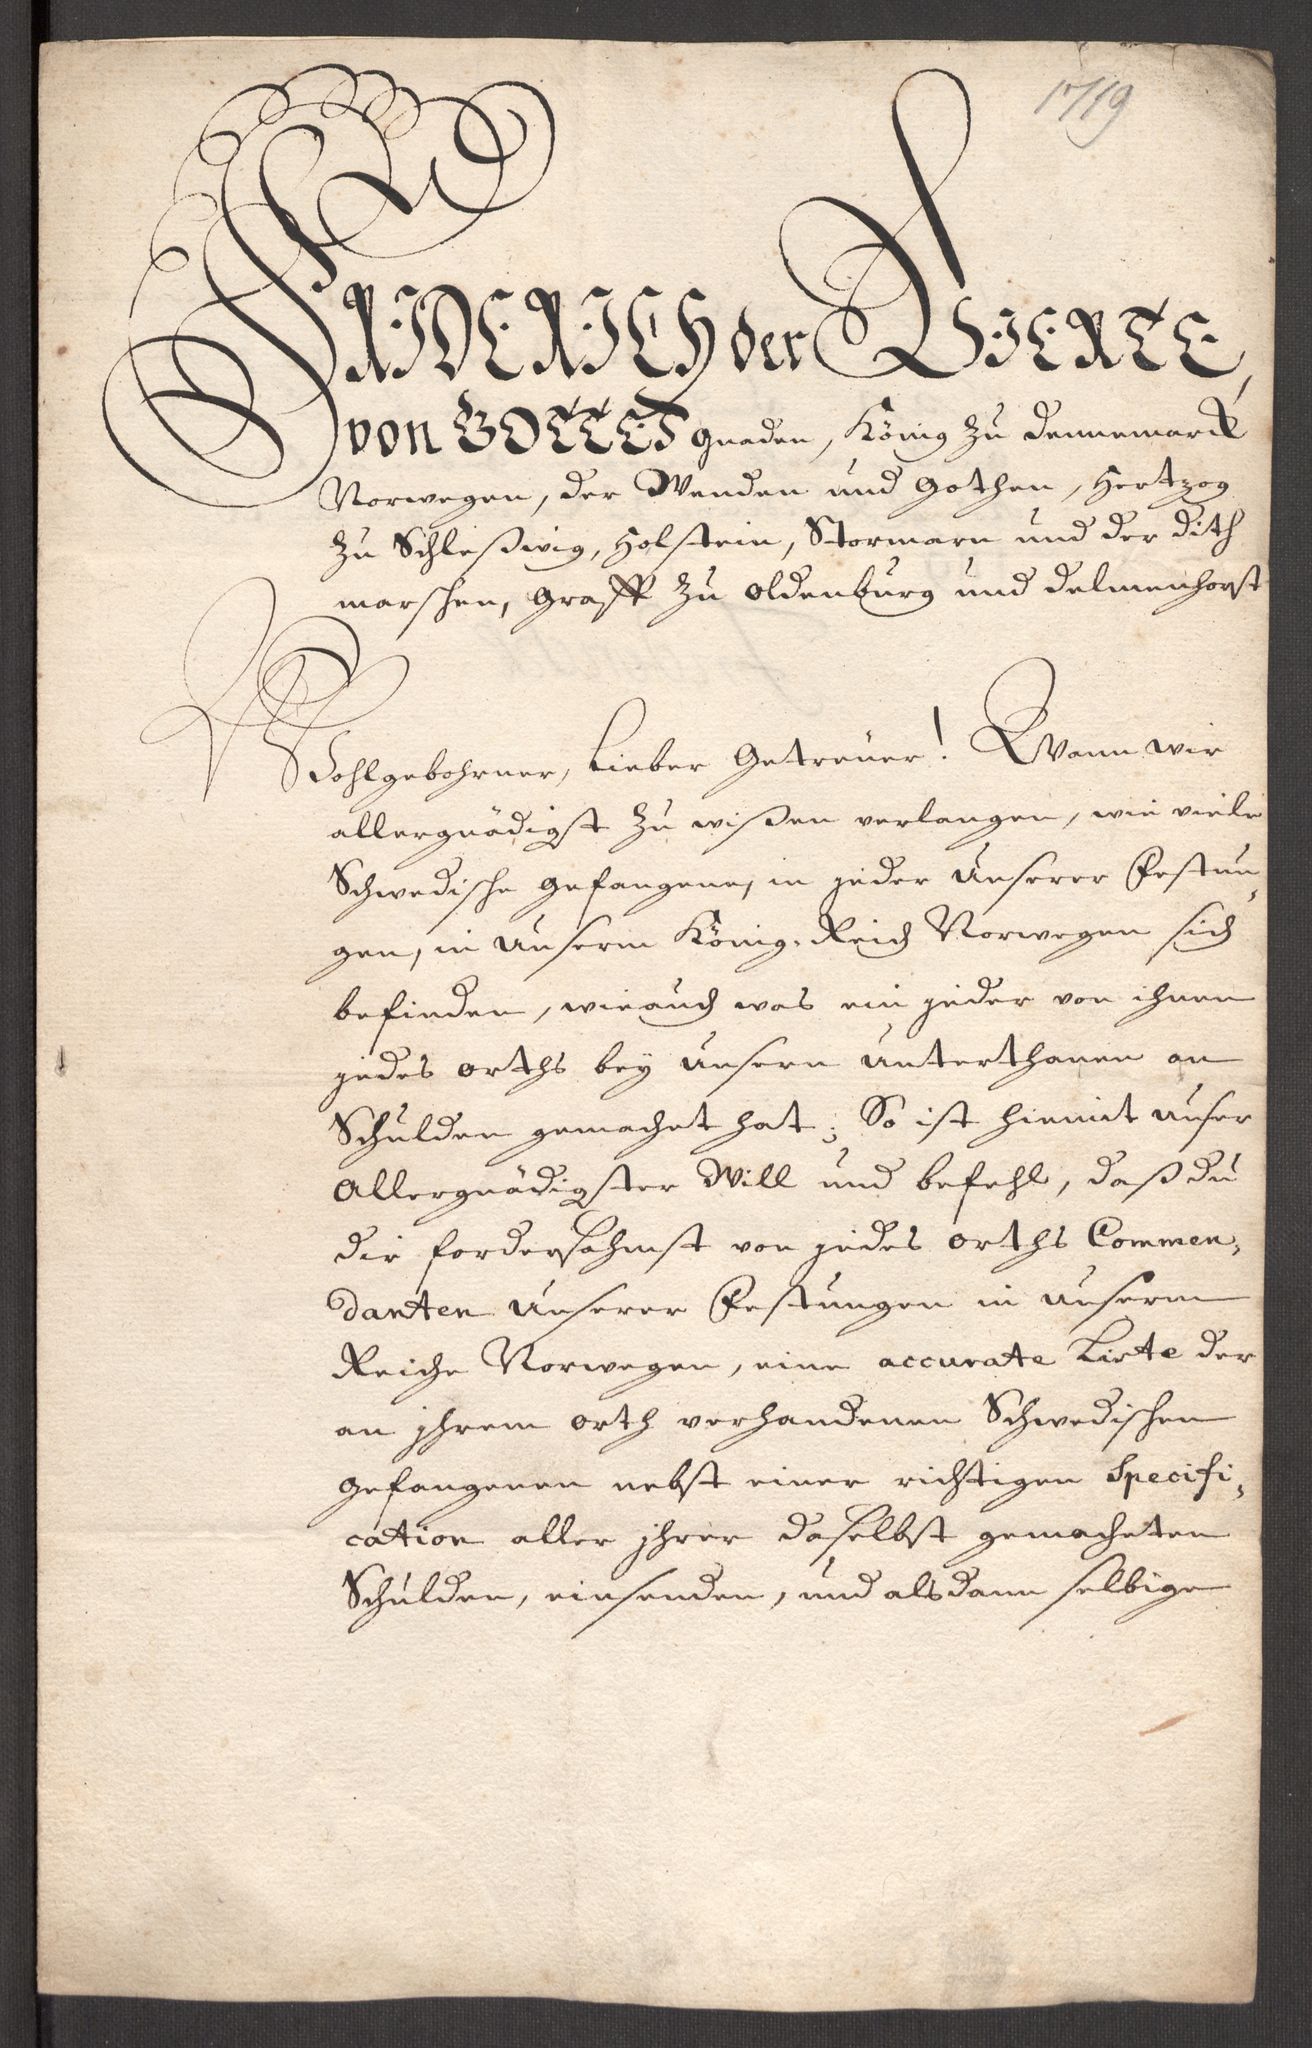 1719
FRIDERICH der VIERTE,
von GOTTES gnaden, König zu Dennemarck
Norwegen, der Wenden und Gothen, Hertzog
zu Schleßwig, Holstein, Stormarn und der Dith
marschen, Graff zu Oldenburg und Delmenhorst
Wohlgebohrner, Lieber Getreüer! Wann wir
allergnädigst zu wißen verlangen, wie viele
Schwedische gefangene, in jeder Unserer Festun,
gen, in Unserm König-Reich Norwegen sich
befinden, wie auch was ein jeder von ihnen
jedes orths bey Unsern Unterthanen an
Schulden gemachet hat; So ist hiemit Unser
Allergnädigster Will und befehl, daß du
dir fordersahmst von jedes orths Commen,
danten Unserer Festungen in Unserm
Reiche Norwegen, eine accurate Liste der
an jhrem orth verhandenen Schwedischen
gefangenen nebst einer richtigen Specifi,
cation aller jhrer daselbst gemacheten
Schulden, einsenden, und alsdann selbige